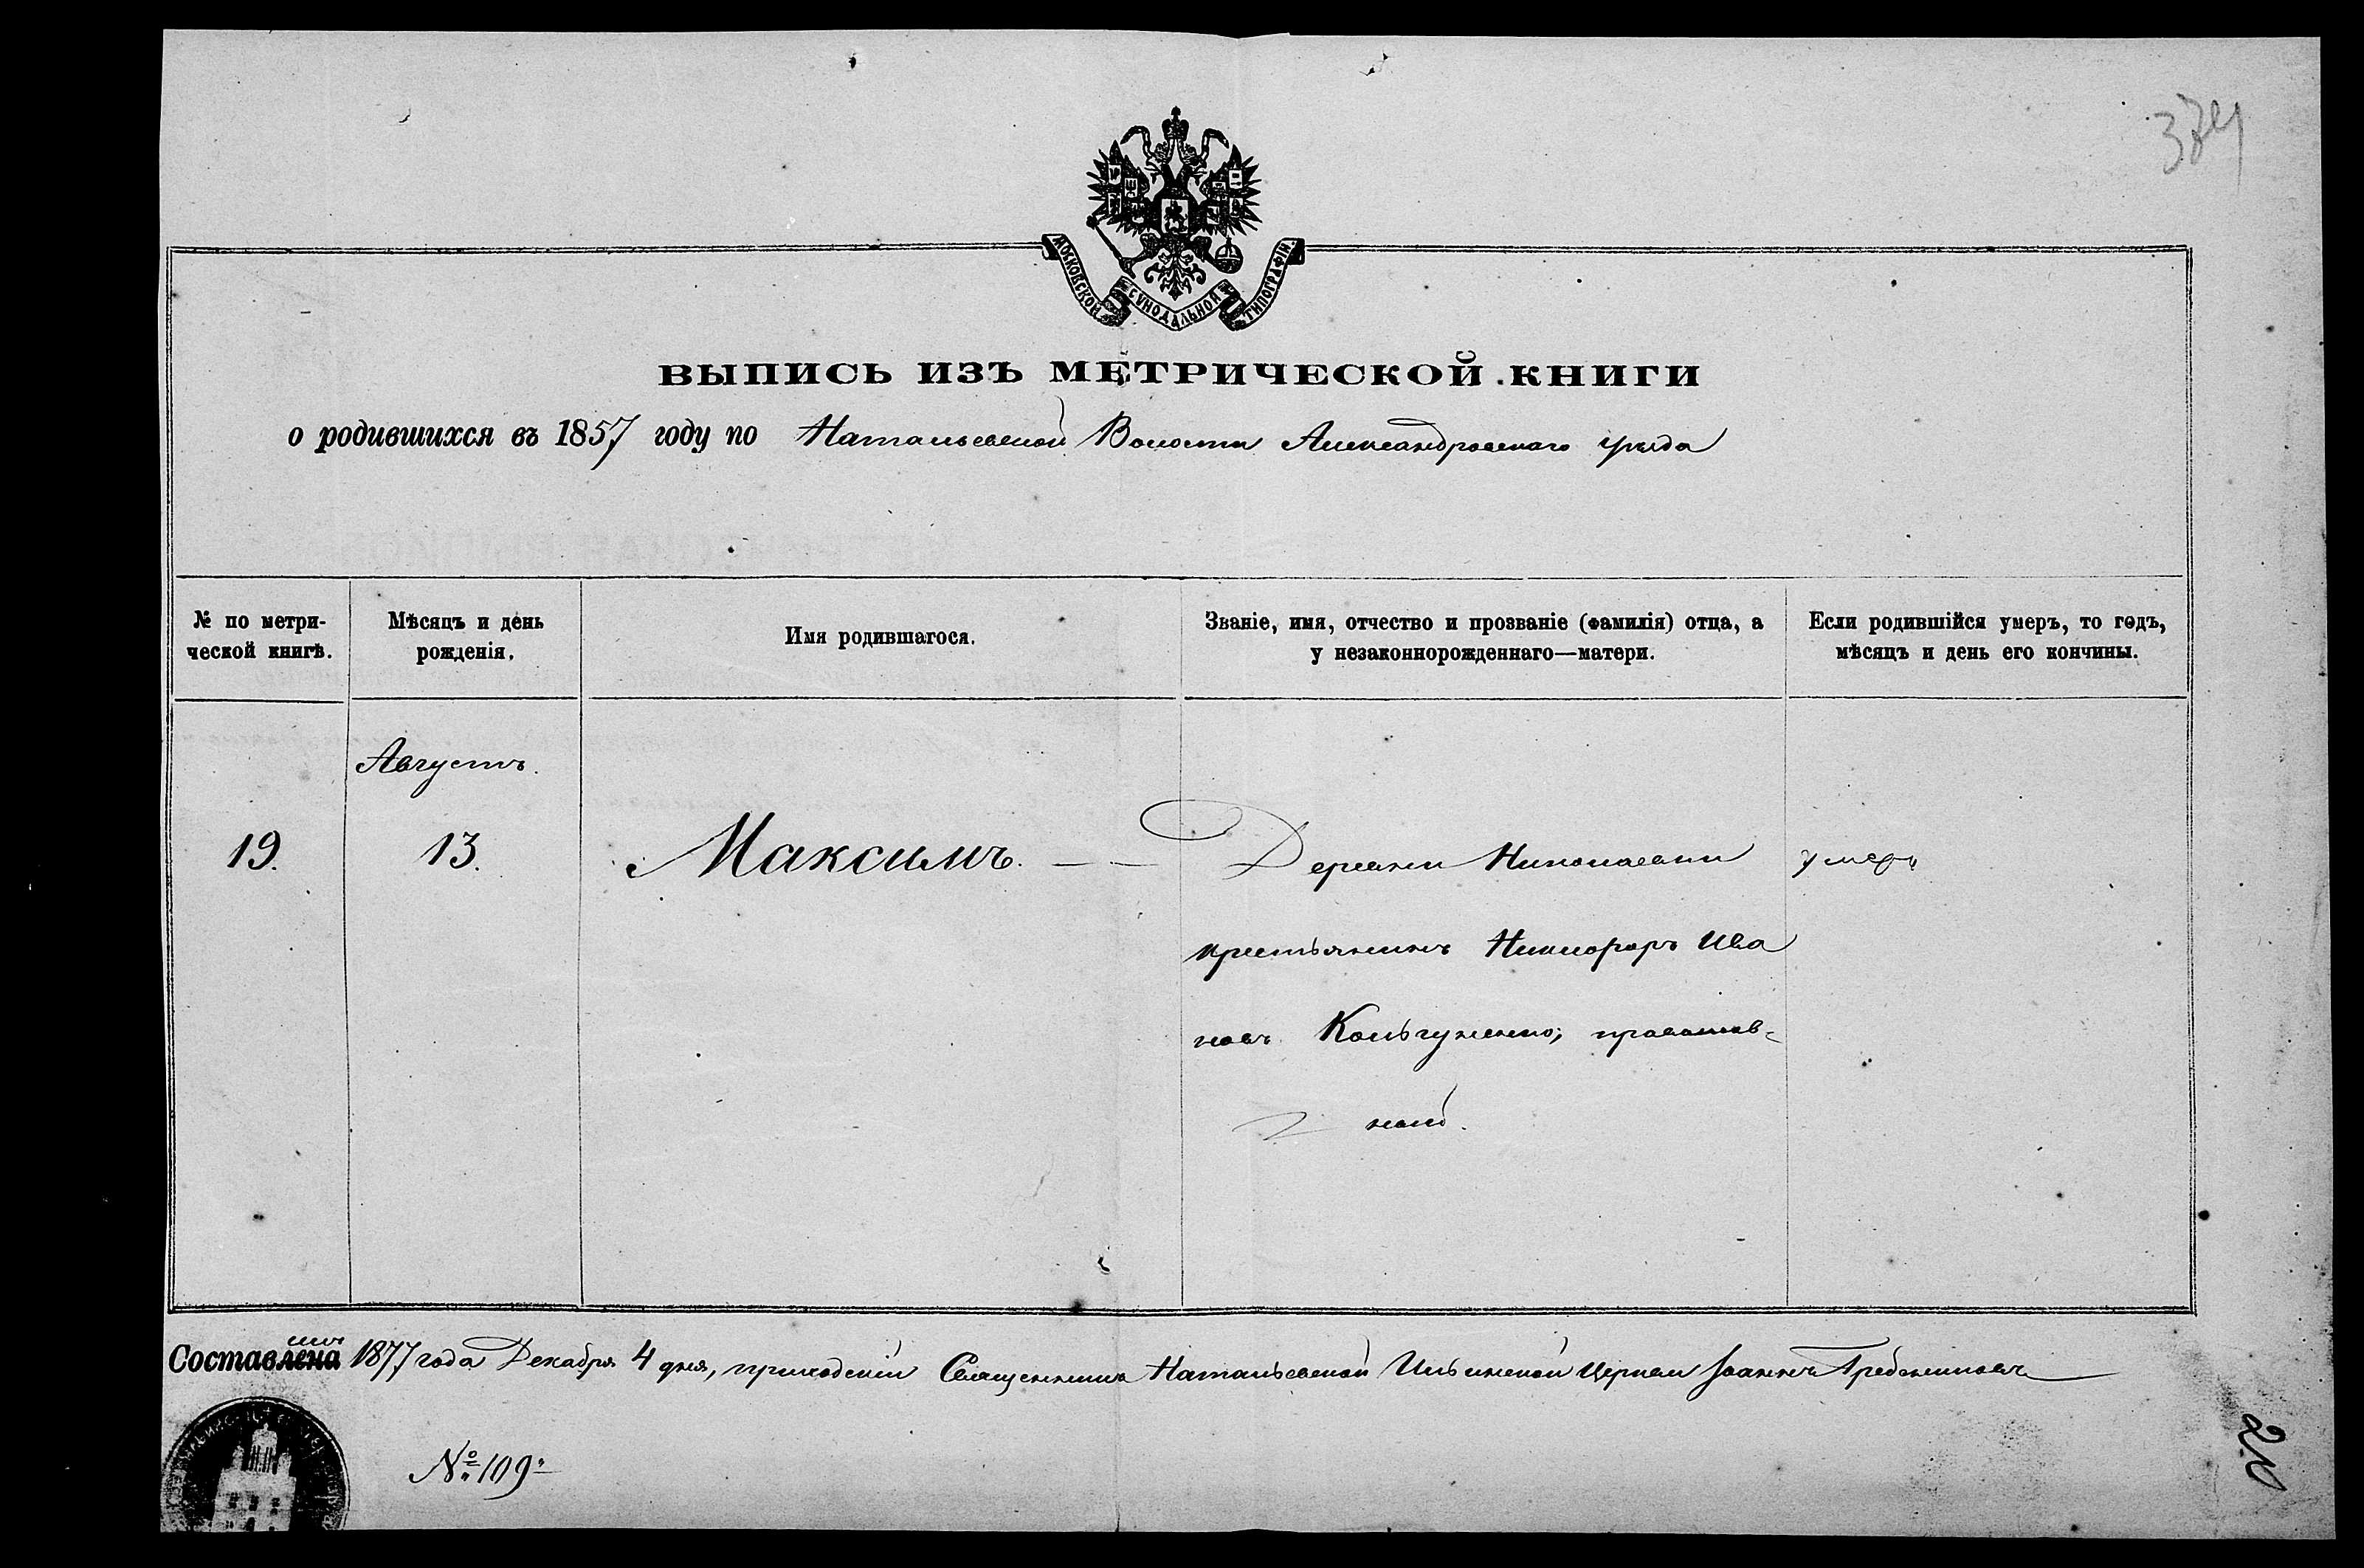 374
МОСКОВСКОЙ СѴНОДАЛЬНОЙ ТИПОГРАФІИ.
ВЫПИСЬ ИЗЪ МЕТРИЧЕСКОЙ КНИГИ
о родившихся въ 1857 году по Натальевской Волости Александровскаго уѣзда
№ по метри-
ческой книгѣ.
Мѣсяцъ и день
рожденія.
Имя родившагося.
Званіе, имя, отчество и прозваніе (фамилія) отца, а
у незаконнорожденнаго—матери.
Если родившійся умеръ, то годъ,
мѣсяцъ и день его кончины.
Августъ.
19.
13.
Максимъ.
Деревни Николаевки
умеръ
крестьянинъ Никифоръ Ива
новъ Кольчуженко, православ-
ной.
Составлена 1877 года Декабря 4 дня, приходскій Священникъ Натальевской Ильинской Церкви Іоаннъ Гребенниковъ
№ 109
20